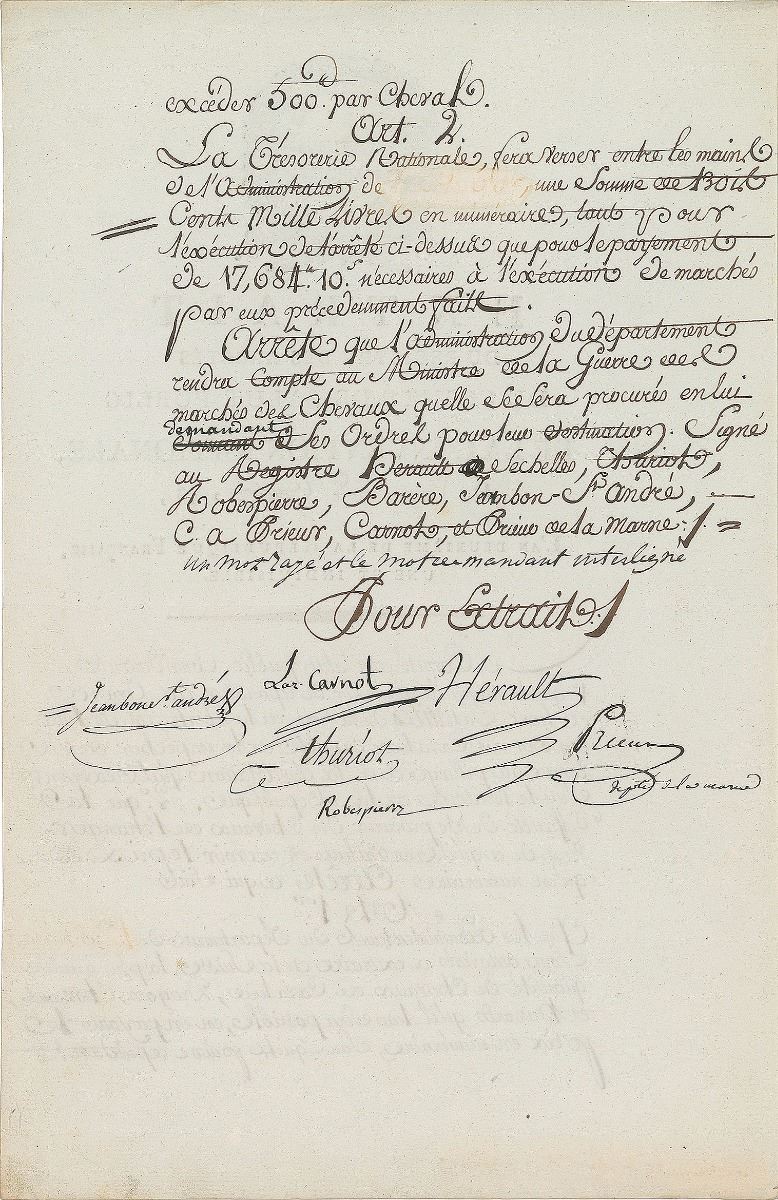 excéder 500.# par Cheval.
Art. 2.
La Trésorerie Nationale, fera verser entre les mains
de l'administration de une Somme de trois
Cents Mille Livres en numéraire, tant pour
l'exécution de l'arrêté ci-dessus que pour le payement
de 17,684.# 10.s nécessaires à l'exécution de marchés
par eux précédemment faits.
Arrête que l'administration du département
rendra Compte au Ministre de la Guerre des
marchés des Chevaux quelle se sera procurés en lui
demandant
ses Ordres pour leur destination. Signé
au Registre Hérault de Sechelles, Thuriot,
Robespierre, Barère, Jambon-St. André,
C. a Prieur, Carnot, et Prieur de la Marne ./. =
un mot rayé et le mot demandant interligné
Pour Extrait ./
Jeanbon St. andré
Laz. Carnot
Hérault
thuriot
Prieur
député de la marne
Robespierre